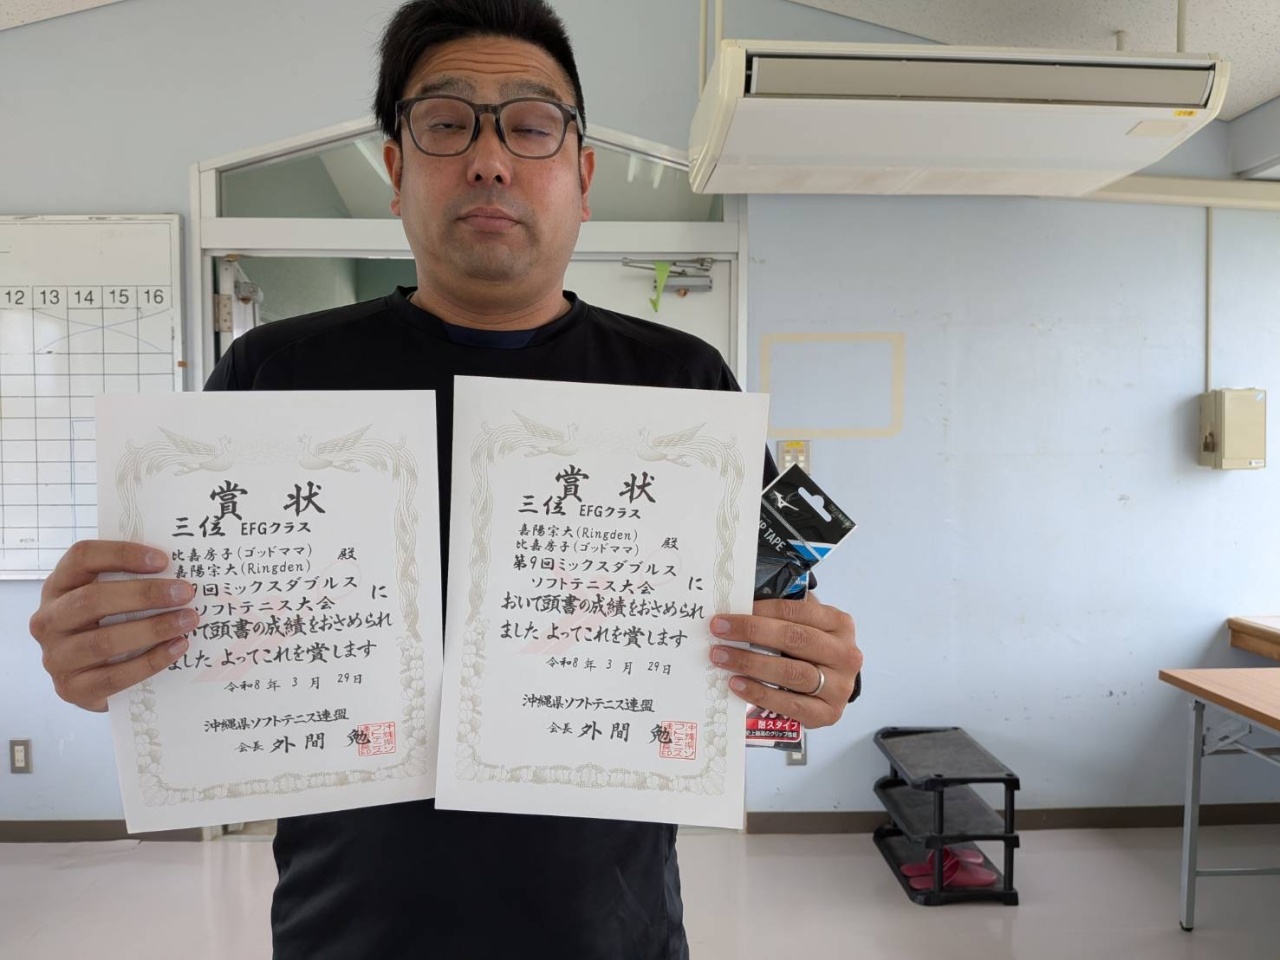 12 13 14 15 16
賞状
三位 EFGクラス
比嘉房子(ゴッドママ) 殿
嘉陽宗大(Ringden)
9回ミックスダブルス
ソフトテニス大会 に
いて頭書の成績をおさめられ
ました よってこれを賞します
令和8年 3月 29日
沖縄県ソフトテニス連盟
会長 外間 勉
賞状
三位 EFGクラス
嘉陽宗大(Ringden)
比嘉房子(ゴッドママ) 殿
第9回ミックスダブルス
ソフトテニス大会 に
おいて頭書の成績をおさめられ
ました よってこれを賞します
令和8年 3月 29日
沖縄県ソフトテニス連盟
会長 外間 勉
TAPE
耐久タイプ